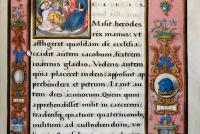 Misit herodes
rex manus: ut
affligeret quosdam de ecclesia.
occidit autem iacobum, fratrem
ioannis gladio. Videns autem
quia placeret iudeis: apposuit ap
prehendere et petrum. Erant au
tem dies azimorum. Quem quum
apprehendisset misit in carcerem:
tradens quatuor quaternionibus
militum ad custodiendum, uo